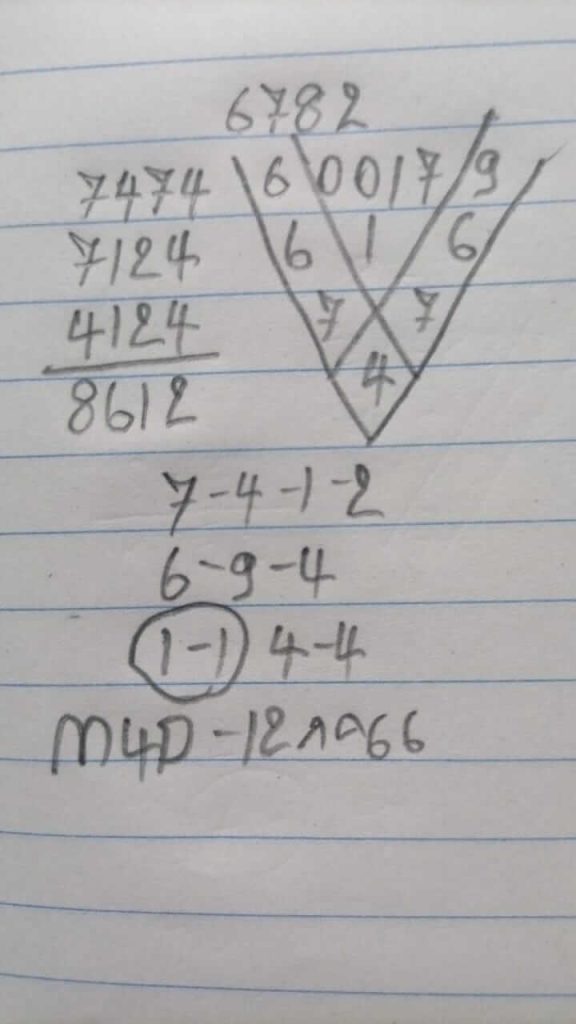 6782
7474
7124
4124
8612
6 0 0 1 7 9
6 1 6
7 7
4
7-4-1-2
6-9-4
1-1 4-4
M4D-12